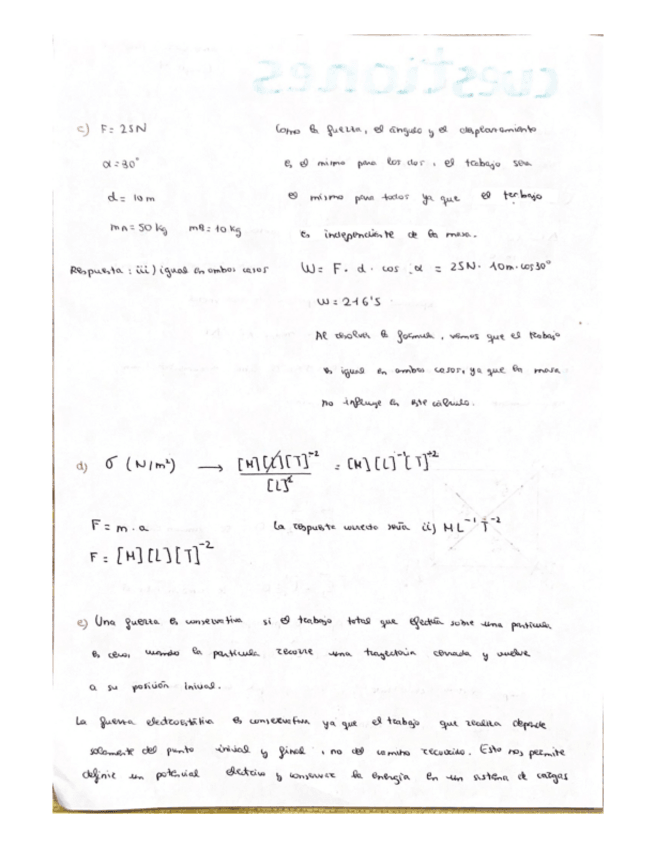 cuestiones
c) F = 25N
α = 30°
d = 10 m
mA = 50 kg mB = 10 kg
Respuesta : iii) igual en ambos casos
Como la fuerza, el ángulo y el desplazamiento
es el mismo para los dos, el trabajo sera
el mismo para todos ya que el trabajo
es independiente de la masa.
W = F · d · cos α = 25N · 10m · cos 30°
W = 216'5
Al resolver la formula, vemos que el trabajo
es igual en ambos casos, ya que la masa
no influye en este cálculo.
d) σ (N/m²) → [M][L][T]⁻² / [L]² = [M][L]⁻¹[T]⁻²
F = m · a
F = [M][L][T]⁻²
La respuesta correcta seria ii) ML⁻¹T⁻²
e) Una fuerza es conservativa si el trabajo total que efectúa sobre una partícula
es cero, cuando la partícula recorre una trayectoria cerrada y vuelve
a su posición inicial.
La fuerza electrostática es conservativa ya que el trabajo que realiza depende
solamente del punto inicial y final, no del camino recorrido. Esto nos permite
definir un potencial electrico y conservar la energía en un sistema de cargas